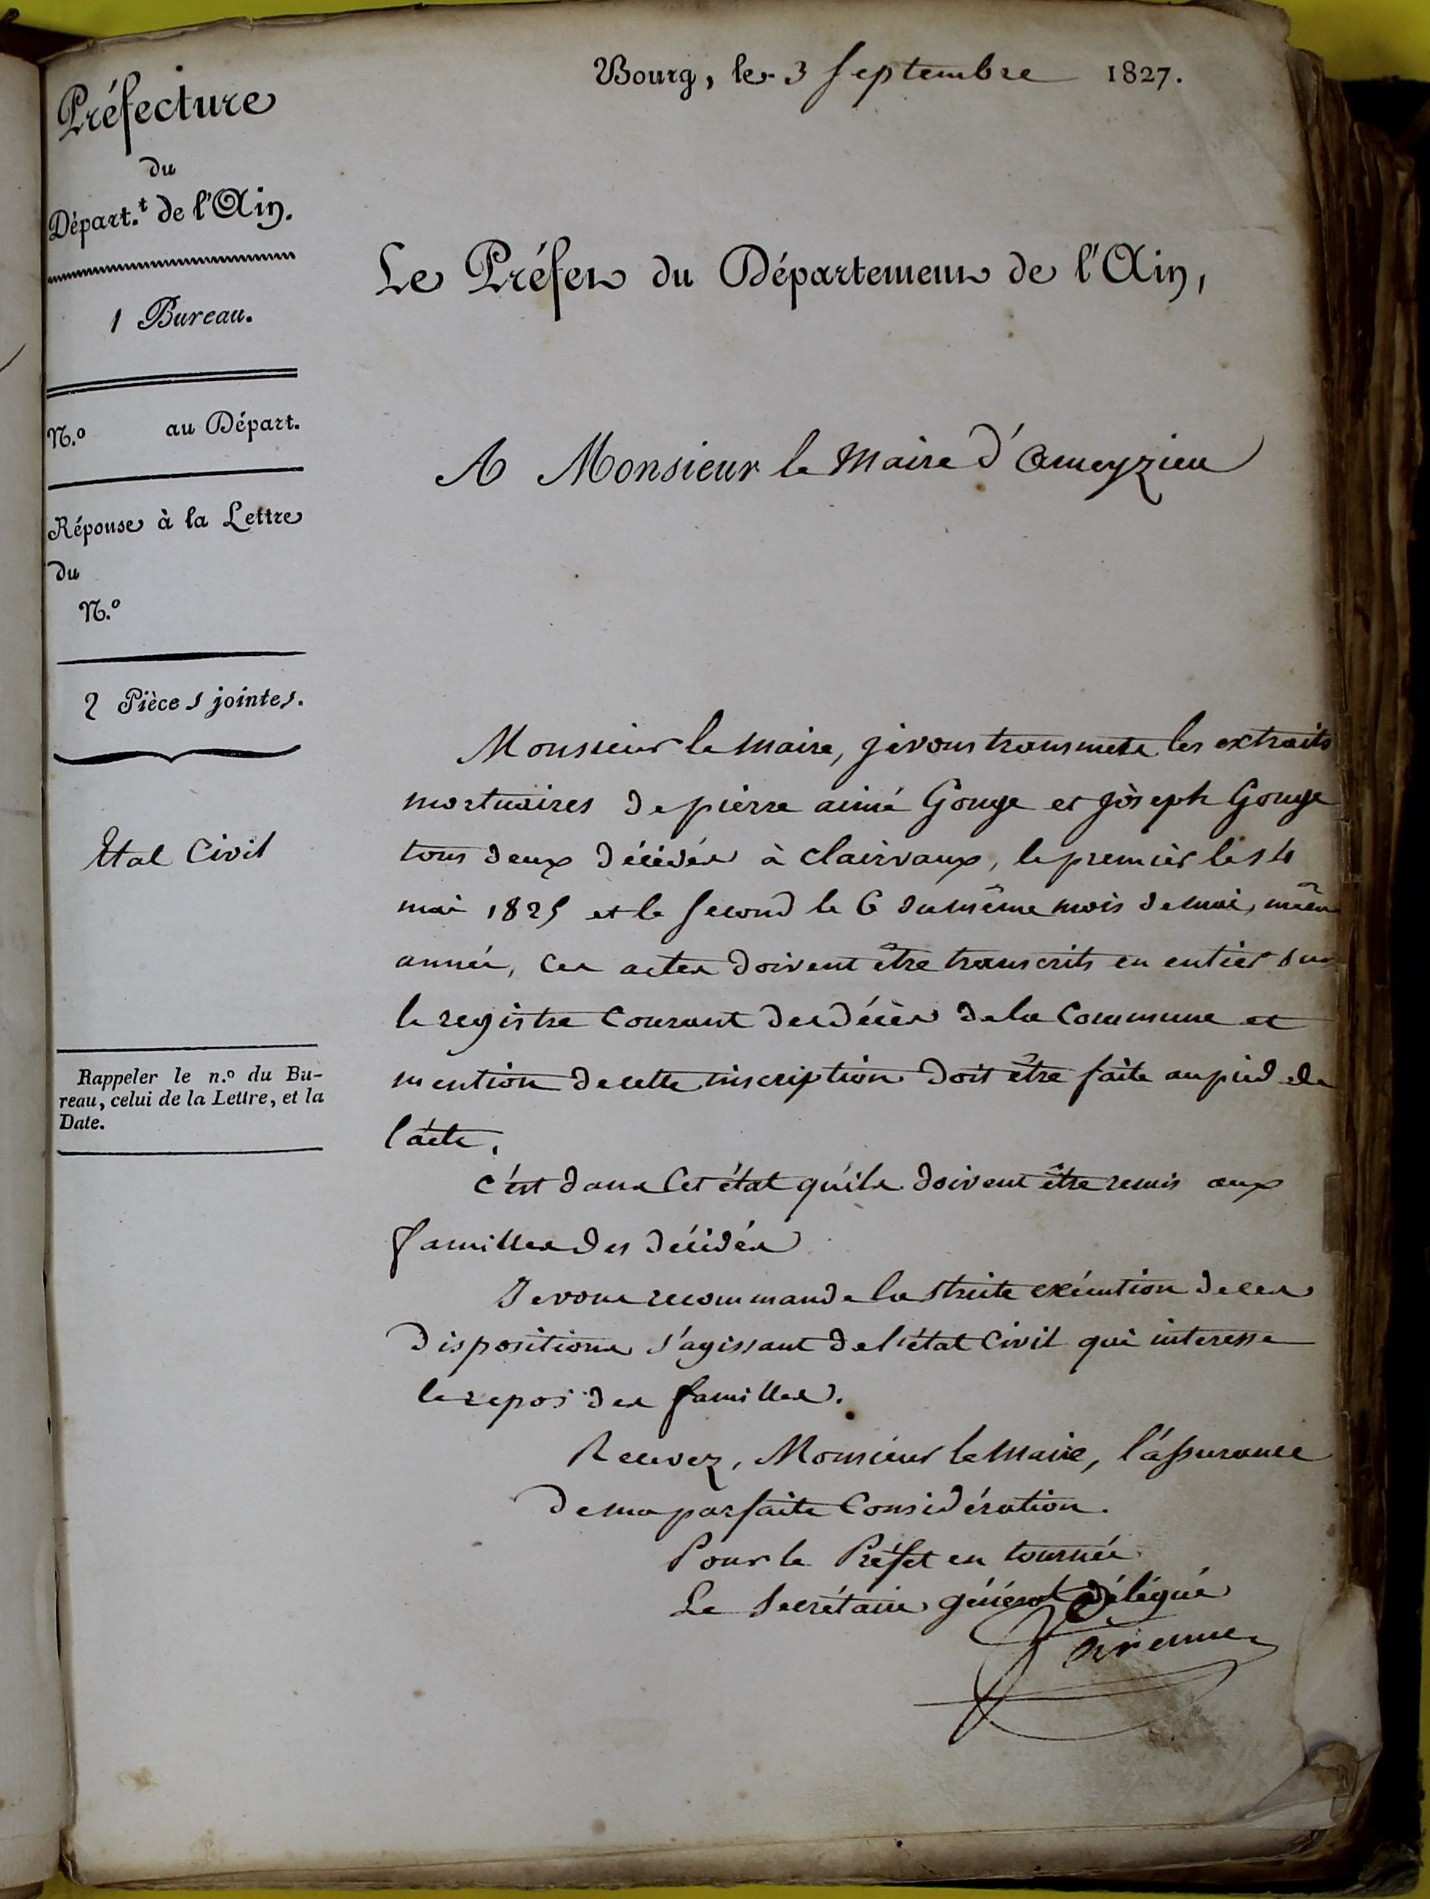 Bourg, le 3 Septembre 1827.
Préfecture
du
Départ.t de l'Ain.
1 Bureau.
N.o au Départ.
Réponse à la Lettre
du
N.o
2 Pièces jointes.
Etat Civil
Rappeler le n.o du Bu-
reau, celui de la Lettre, et la
Date.
Le Préfet du Département de l'Ain,
A Monsieur le Maire d'Ameyzieu
Monsieur le Maire, je vous transmets les extraits
mortuaires de pierre aimé Gonge et joseph Gonge
tous deux décédés à Clairvaux, le premier le 14
mai 1825 et le second le 6 du même mois de mai, même
année, Ces actes doivent être transcrits en entier sur
le registre Courant des décès de la Commune et
mention de cette inscription doit être faite au pied de
l'acte.
C'est dans Cet état qu'ils doivent être remis aux
familles des décédés
Je vous recommande la stricte exécution de ces
dispositions s'agissant de l'état Civil qui interesse
le repos des familles.
Recevez, Monsieur le Maire, l'assurance
de ma parfaite Considération.
Pour le Préfet en tournée
Le Secrétaire général délégué